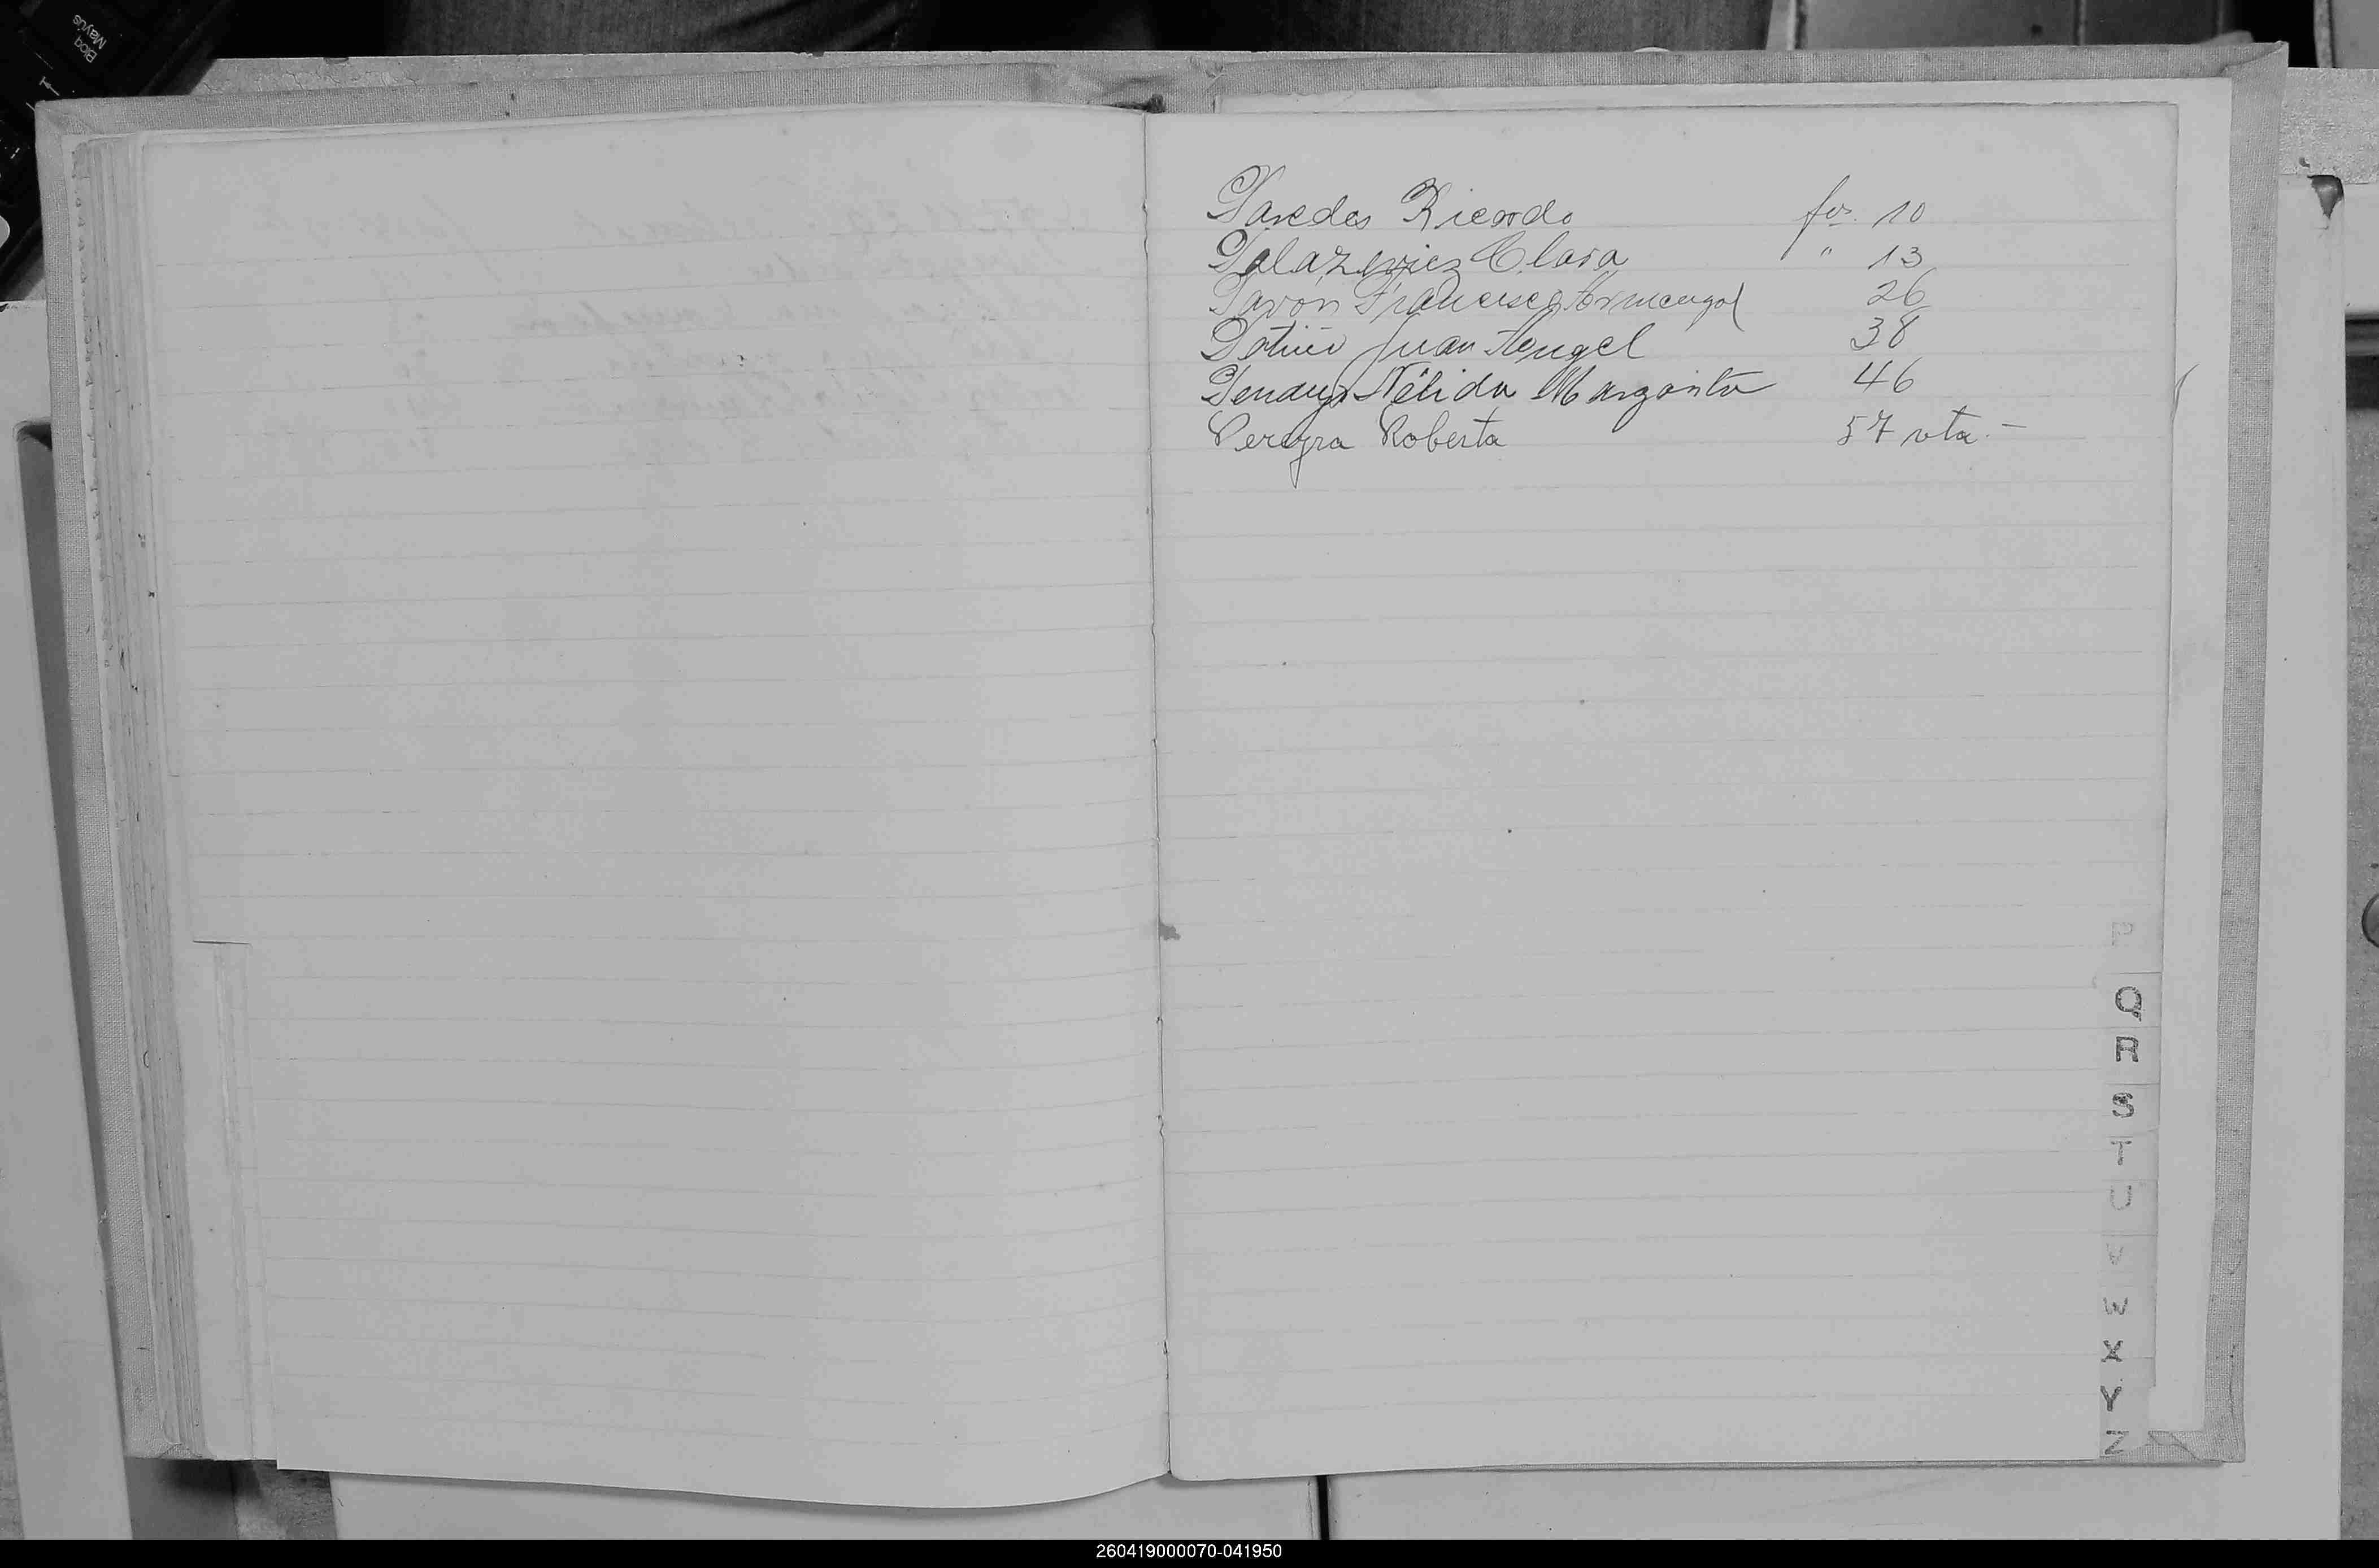 Paredes Ricardo fs. 10
Palazewicz Clara " 13
Pavón Francisco Armengol 26
Patiño Juan Angel 38
Nélida Margarita 46
Pereyra Roberta 57 vta.-
Q
R
S
T
U
V
W
X
Y
Z
Bloq
Mayús
260419000070-041950